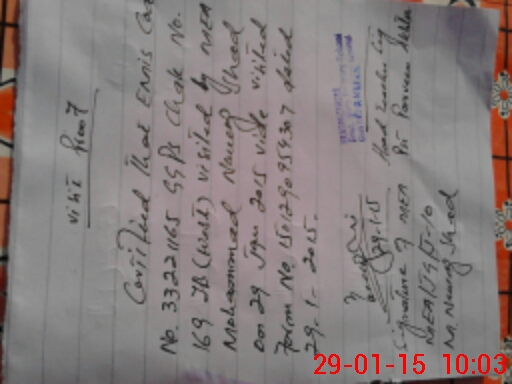 visit proof
Certified that EMIS Code
No. 33221165 GGPS Chak No.
169 JB (West) visited by MEA
Mohammad Nawaz Shad
on 29 Jan 2015 vide visited
form No. 1501290954307 dated
29-1-2015.
29-1-15
Signature of MEA
MEA
M. Nawaz Shad
Head teacher
Parveen Akhtar
29-01-15 10:03